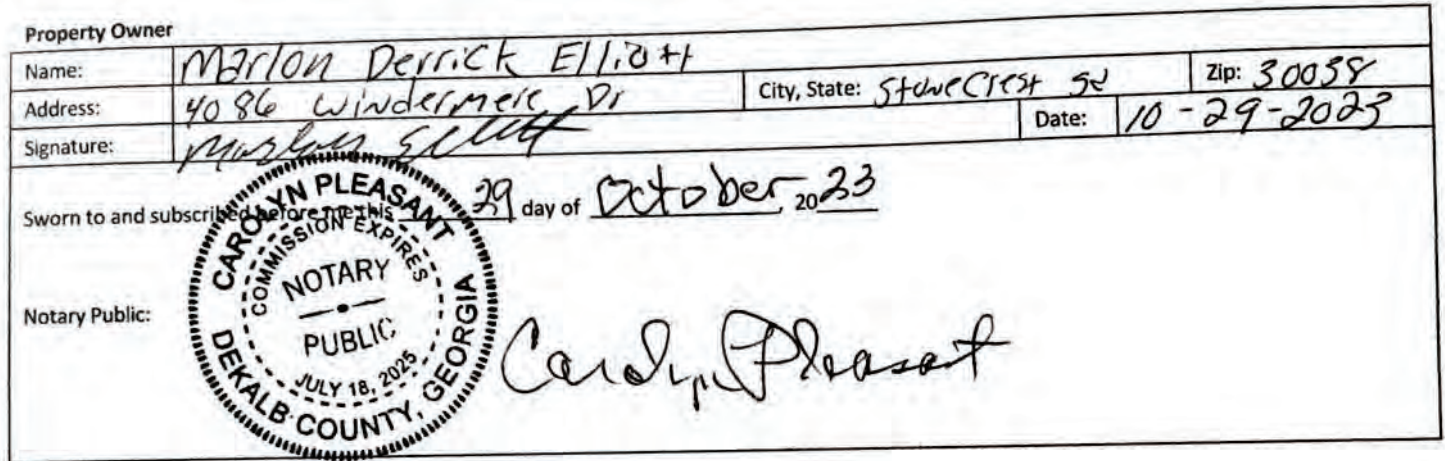 Property Owner
Name: Marlon Derrick Elliott
Address: 4086 Windermere Dr City, State: StoneCrest Ga Zip: 30038
Signature: Marlon Elliott Date: 10-29-2023
Sworn to and subscribed before me this 29 day of October, 2023
Notary Public:
CAROLYN PLEASANT
COMMISSION EXPIRES
NOTARY
PUBLIC
JULY 18, 2025
DEKALB COUNTY, GEORGIA
Carolyn Pleasant